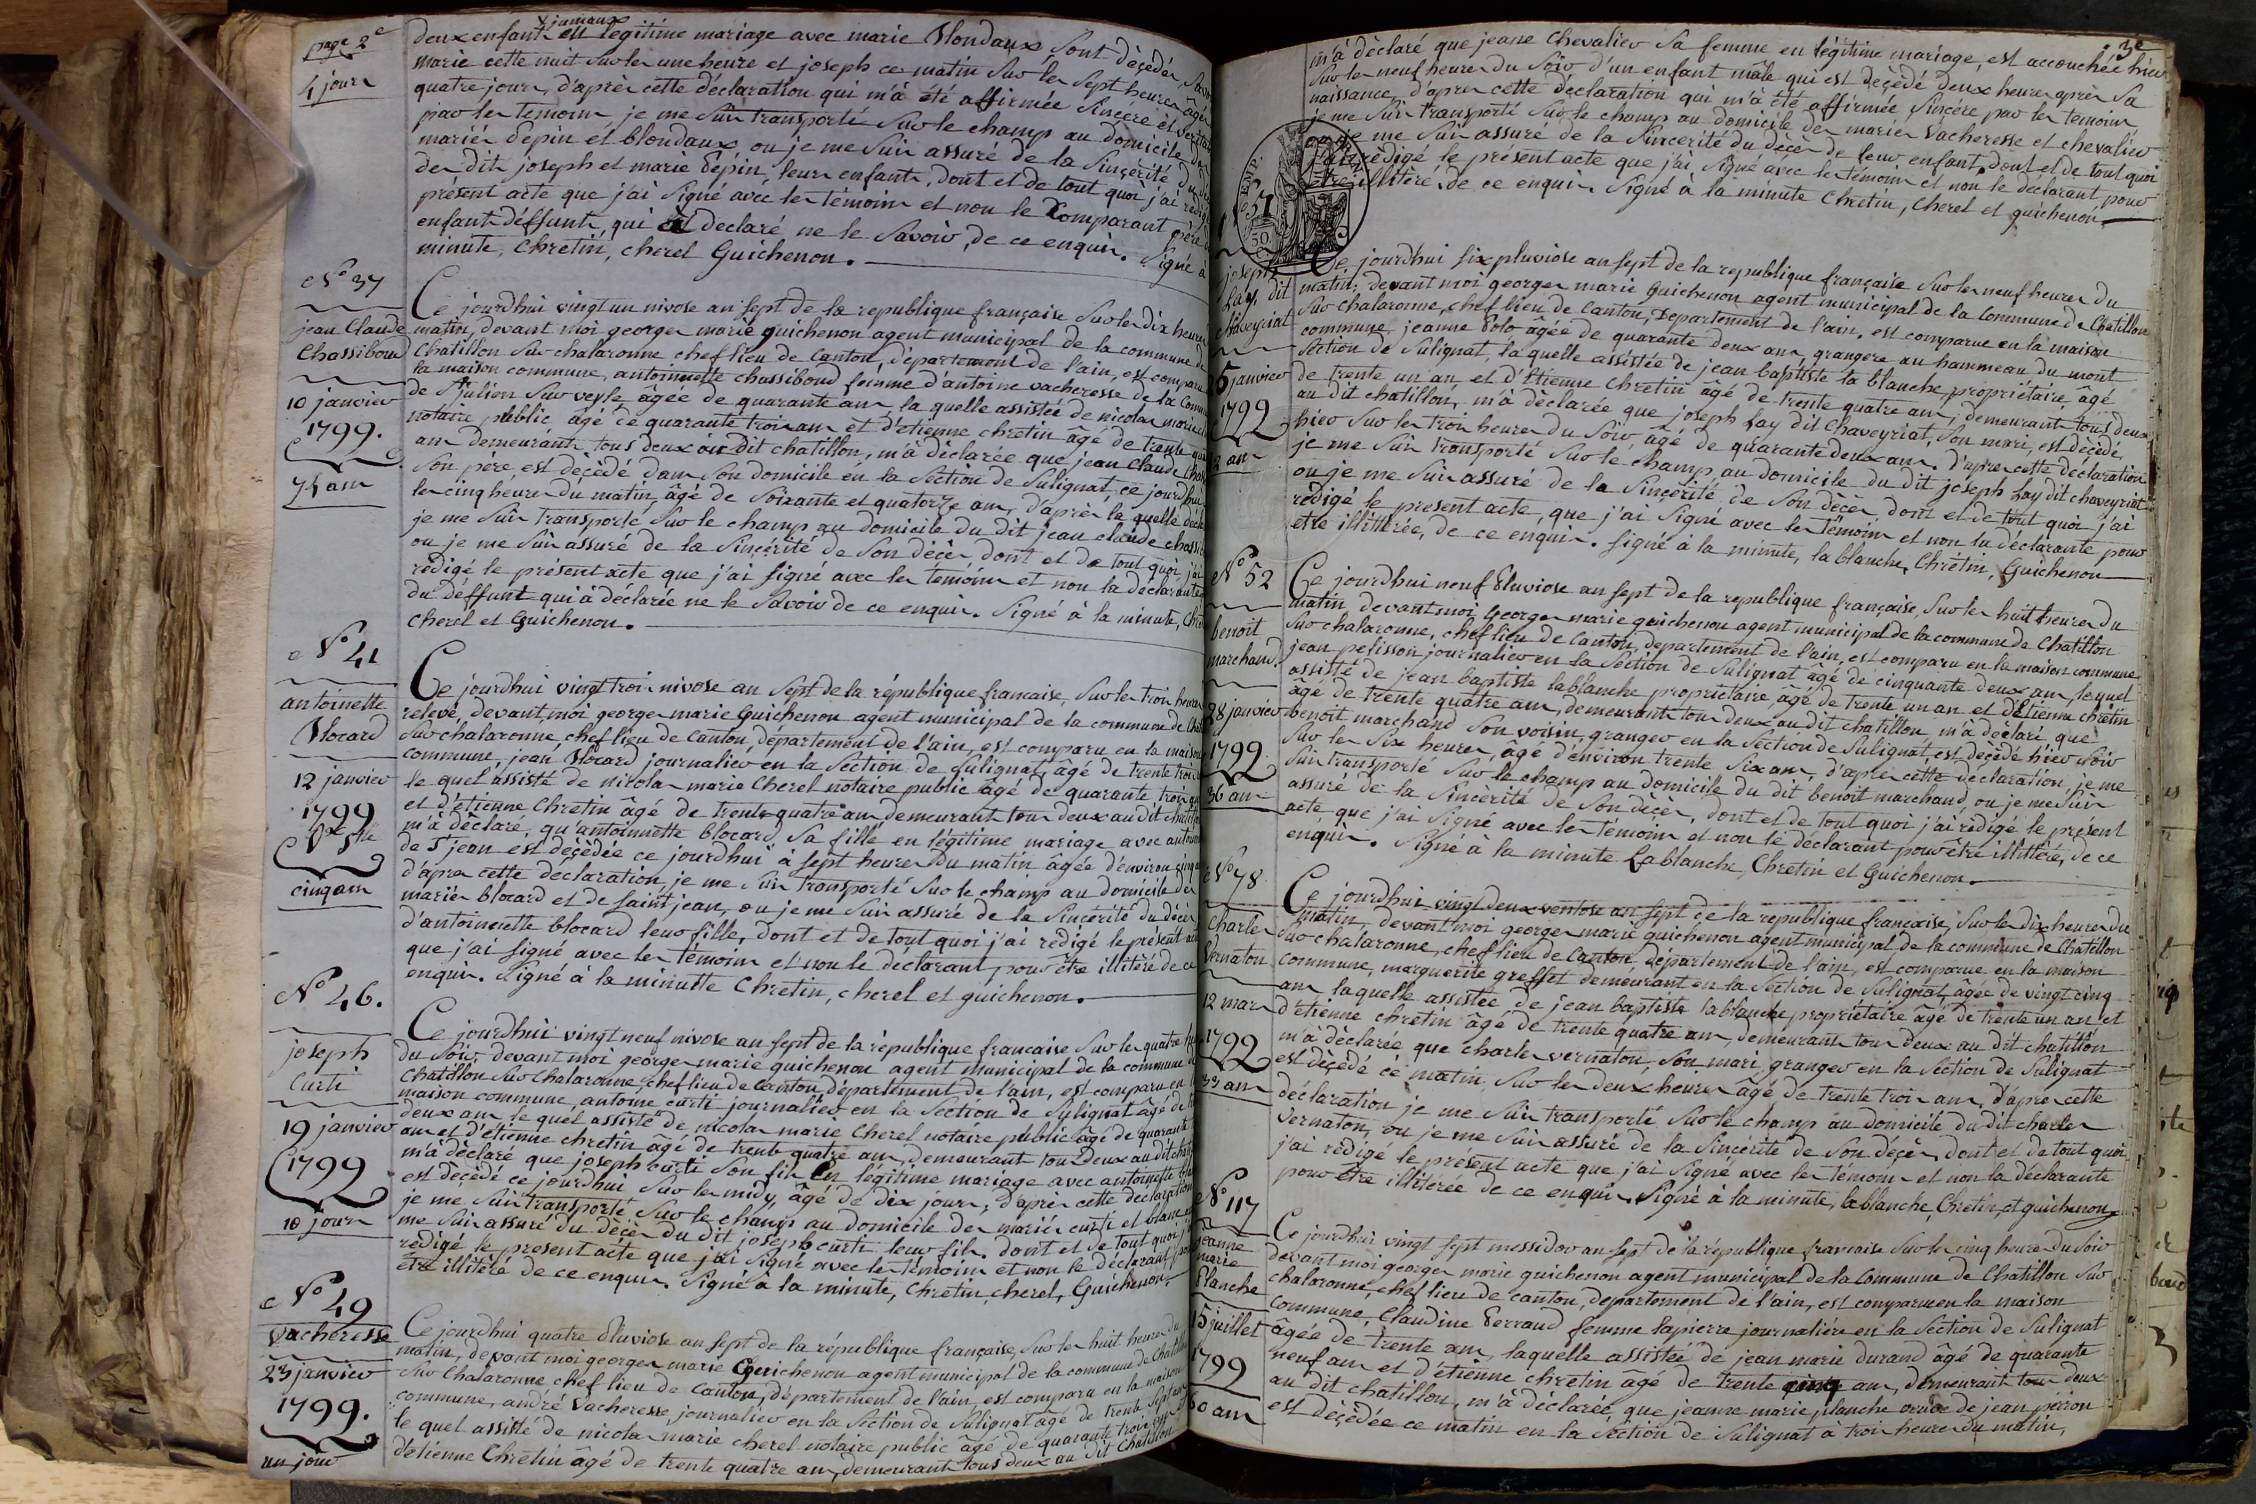 page 2e
4 jours
jumeaux
deux enfants en légitime mariage avec marie Blondaux, sont décédés, savoir
marie cette nuit sur les une heure et joseph ce matin sur les sept heures âgés
quatre jours, d'après cette déclaration qui m'à été affirmée sincére et véritable
par les temoins, je me suis transporté sur le champ au domicile des
mariés depin et blondaux, ou je me suis assuré de la sincérité du décès
des dit joseph et marie dépin, leurs enfants, dont et de tout quoi j'ai rédigé
présent acte que j'ai signé avec les témoins et non le Comparant père
enfants déffunts, qui à déclaré ne le savoir, de ce enquis. Signé à
minute, Chretin, cherel Guichenon.
N° 37
jean Claude
Chassiboud
10 janvier
1799.
74 ans
Ce jourdhui vingt un nivose an sept de la republique française sur les dix heures
matin, devant moi georges marie guichenon agent municipal de la commune de
Chatillon sur chalaronne chef lieu de Canton, département de l'ain, est comparu
la maison commune, antoinette chassiboud femme d'antoine vacheresse de la Commune
de St julien sur veyle âgée de quarante ans la quelle assistée de nicolas marie
notaire publlic, âgé de quarante trois ans et d'etienne chretin âgé de trente
ans demeurants tous deux au dit chatillon, m'à déclarée que jean Claude Chass
son pére, est décédé dans son domicile en la section de Sulignat, ce jourdhui
les cinq heures du matin, âgé de soixante et quatorze ans, d'après la quelle décla
je me suis transporté sur le champ au domicile du dit jean claude chassi
ou je me suis assuré de la sincérité de son décès, dont et de tout quoi j'ai
rédigé le présent acte que j'ai signé avec les temoins et non la déclarante
du déffunt qui à declarée ne le savoir de ce enquis. Signé à la minute, Chre
cherel et Guichenon.
N° 41
antoinette
Blocard
12 janvier
1799
cinq ans
Ce jourdhui vingt trois nivose an sept de la république francaise, sur les trois heures
relevé, devant moi georges marie Guichenon agent municipal de la commune de Chat
sur chalaronne chef lieu de Canton, département de l'ain, est comparu en la maison
commune, jean Blocard journalier en la section de sulignat, âgé de trente trois
le quel assisté de nicolas marie Cherel notaire public âgé de quarante trois
et d'étienne Chretin âgé de trente quatre ans demeurant tous deux au dit chatillon
m'à déclaré, qu'antoinette blocard sa fille en légitime mariage avec antoin
de St jean est décédée ce jourdhui à sept heures du matin âgée d'environ cinq
d'après cette déclaration, je me suis transporté sur le champ au domicile des
mariés blocard et de saint jean, ou je me suis assuré de la Sincérité du décès
d'antoinette blocard leur fille, dont et de tout quoi j'ai rédigé le présent acte
que j'ai signé avec les témoins et non le déclarant, pour être illitéré de ce
enquis. Signé à la minutte Chretin, cherel et guichenon.
N° 46.
joseph
Curti
19 janvier
1799
10 jours
Ce jourdhui vingt neuf nivose an sept de la république francaise sur les quatre
du soir, devant moi georges marie guichenon agent municipal de la commune de
Chatillon sur Chalaronne, chef lieu de canton, département de l'ain, est comparu en
maison commune, antoine curti journalier en la section de Sulignat âgé de
deux ans le quel assisté de nicolas marie Cherel notaire public âgé de quarante
ans et d'étienne chretin âgé de trente quatre ans, demeurant tous deux au dit chat
m'à déclaré que joseph curti son fils en légitime mariage avec antoinette
est décédé ce jourdhui, sur les midy, âgé de dix jours, d'après cette declaration
je me suis transporté sur le champ au domicile des mariés curti et blanc
me suis assuré du décès du dit joseph curti leur fils. dont et de tout quoi j
rédigé le present acte que j'ai signé avec les temoins et non le déclarant
être illitéré de ce enquis. Signé à la minute, Chretin, cherel, Guichenon.
N° 49
Vacheresse
23 janvier
1799.
un jour
Ce jourdhui quatre Pluviose an sept de la république française, sur les huit heures du
matin, devant moi georges marie Guichenon agent municipal de la commune de Chatillon
sur Chalaronne chef lieu de canton, département de l'ain, est comparu en la maison
commune, andré vacheresse, journalier en la section de Sulignat âgé de trente sept ans
le quel assisté de nicolas marie cherel notaire public âgé de quarante trois ans
d'étienne Chretin âgé de trente quatre ans, demeurants tous deux au dit Chatillon
3e
m'à déclaré que jeane Chevalier sa femme en légitime mariage, est accouchée hier
sur les neuf heures du soir d'un enfant mâle qui est décédé deux heures après sa
naissance, d'après cette déclaration qui m'à été affirmée sincére par les temoins
je me suis transporté sur le champ au domicile des mariés vacheresse et chevalier
ou je me suis assuré de la sincerité du décès de leur enfant, dont et de tout quoi
j'ai rédigé le présent acte que j'ai signé avec les témoins et non le déclarant pour
être illitéré de ce enquis. Signé à la minute Chretin, Cherel et guichenon.
N° 51
50
joseph
Lay dit
Chaveyriat
25 janvier
1799
42 ans
Ce jourdhui six pluviose an sept de la republique française sur les neuf heures du
matin; devant moi georges marie Guichenon agent municipal de la Commune de Chatillon
sur Chalaronne, chef lieu de Canton, Departement de l'ain, est comparue en la maison
commune, jeanne Bolo âgée de quarante deux ans, grangere au hammeau du mont
Section de Sulignat, la quelle assistée de jean baptiste la blanche, propriétaire, âgé
de trente un an, et d'Etienne Chretin âgé de trente quatre ans, demeurants tous deux
au dit chatillon, m'à déclarée que joseph Lay dit Chaveyriat, son mari, est décédé
hier sur les trois heures du soir, âgé de quarante deux ans. D'après cette déclaration
je me suis transporté sur le champ au domicile du dit joseph Lay dit chaveyriat
ou je me suis assuré de la sincérité de son décès, dont et de tout quoi j'ai
rédigé le present acte, que j'ai signé avec les témoins et non la déclarante pour
etre illittérée, de ce enquis. Signé à la minute, la blanche, Chrétin, Guichenon
N° 52
benoit
marchand.
28 janvier
1799
36 ans
Ce jourdhui neuf Pluviose an sept de la republique française, sur les huit heures du
matin, devant moi Georges marie guichenon agent municipal de la commune de Chatillon
sur chalaronne, chef lieu de canton, departement de l'ain, est comparu en la maison commune
jean pelisson journalier en la section de Sulignat âgé de cinquante deux ans, lequel
assisté de jean baptiste lablanche proprietaire, âgé de trente un an et d'Etienne chretin
âgé de trente quatre ans, demeurants tous deux au dit chatillon, m'à déclaré que
benoit marchand son voisin, granger en la section de Sulignat, est décédé hier soir
sur les six heures, âgé d'environ trente six ans, d'après cette déclaration, je me
suis transporté sur le champ au domicile du dit benoit marchand, ou je me suis
assuré de la sincérité de son décès, dont et de tout quoi j'ai rédigé le présent
acte, que j'ai signé avec les témoins et non le déclarant pour être illittéré, de ce
enquis. Signé à la minute Lablanche, Chretin et Guichenon.
N° 78
Charles
Vernaton
12 mars
1799
33 ans
Ce jourdhui vingt deux ventose an sept de la republique française, sur les dix heures du
matin, devant moi georges marie guichenon agent municipal de la commune de Chatillon
sur chalaronne, chef lieu de Canton, departement de l'ain, est comparue en la maison
commune, marguerite greffet demeurant en la section de Sulignat, âgée de vingt cinq
ans laquelle assistée de jean baptiste lablanche propriétaire âgé de trente un an et
d'étienne chretin âgé de trente quatre ans, demeurants tous deux au dit chatillon
m'à déclarée que charles vernaton, son mari, granger en la section de Sulignat
est décédé ce matin, sur les deux heures âgé de trente trois ans, d'après cette
déclaration je me suis transporté sur le champ au domicile du dit charles
vernaton, ou je me suis assuré de la sincerité de son décès, dont et de tout quoi
j'ai rédigé le présent acte que j'ai signé avec les témoins et non la déclarante
pour être illitérée de ce enquis. Signé à la minute, lablanche, Chretin, et guichenon
N° 117
jeanne
marie
Planche
15 juillet
1799
60 ans
Ce jourdhui vingt sept messidor an sept de la république francaise sur les cinq heures du soir
devant moi georges marie guichenon agent municipal de la Commune de Chatillon sur
chalaronne, chef lieu de canton, departement de l'ain, est comparue en la maison
commune, Claudine Perraud femme lapierre journaliére en la section de Sulignat
âgée de trente ans, laquelle assistée de jean marie durand âgé de quarante
neuf ans et d'étienne chretin âgé de trente cinq ans, demeurants tous deux
au dit chatillon, m'à déclarée, que jeanne marie planche veuve de jean perron
est décédée ce matin en la section de Sulignat à trois heures du matin,